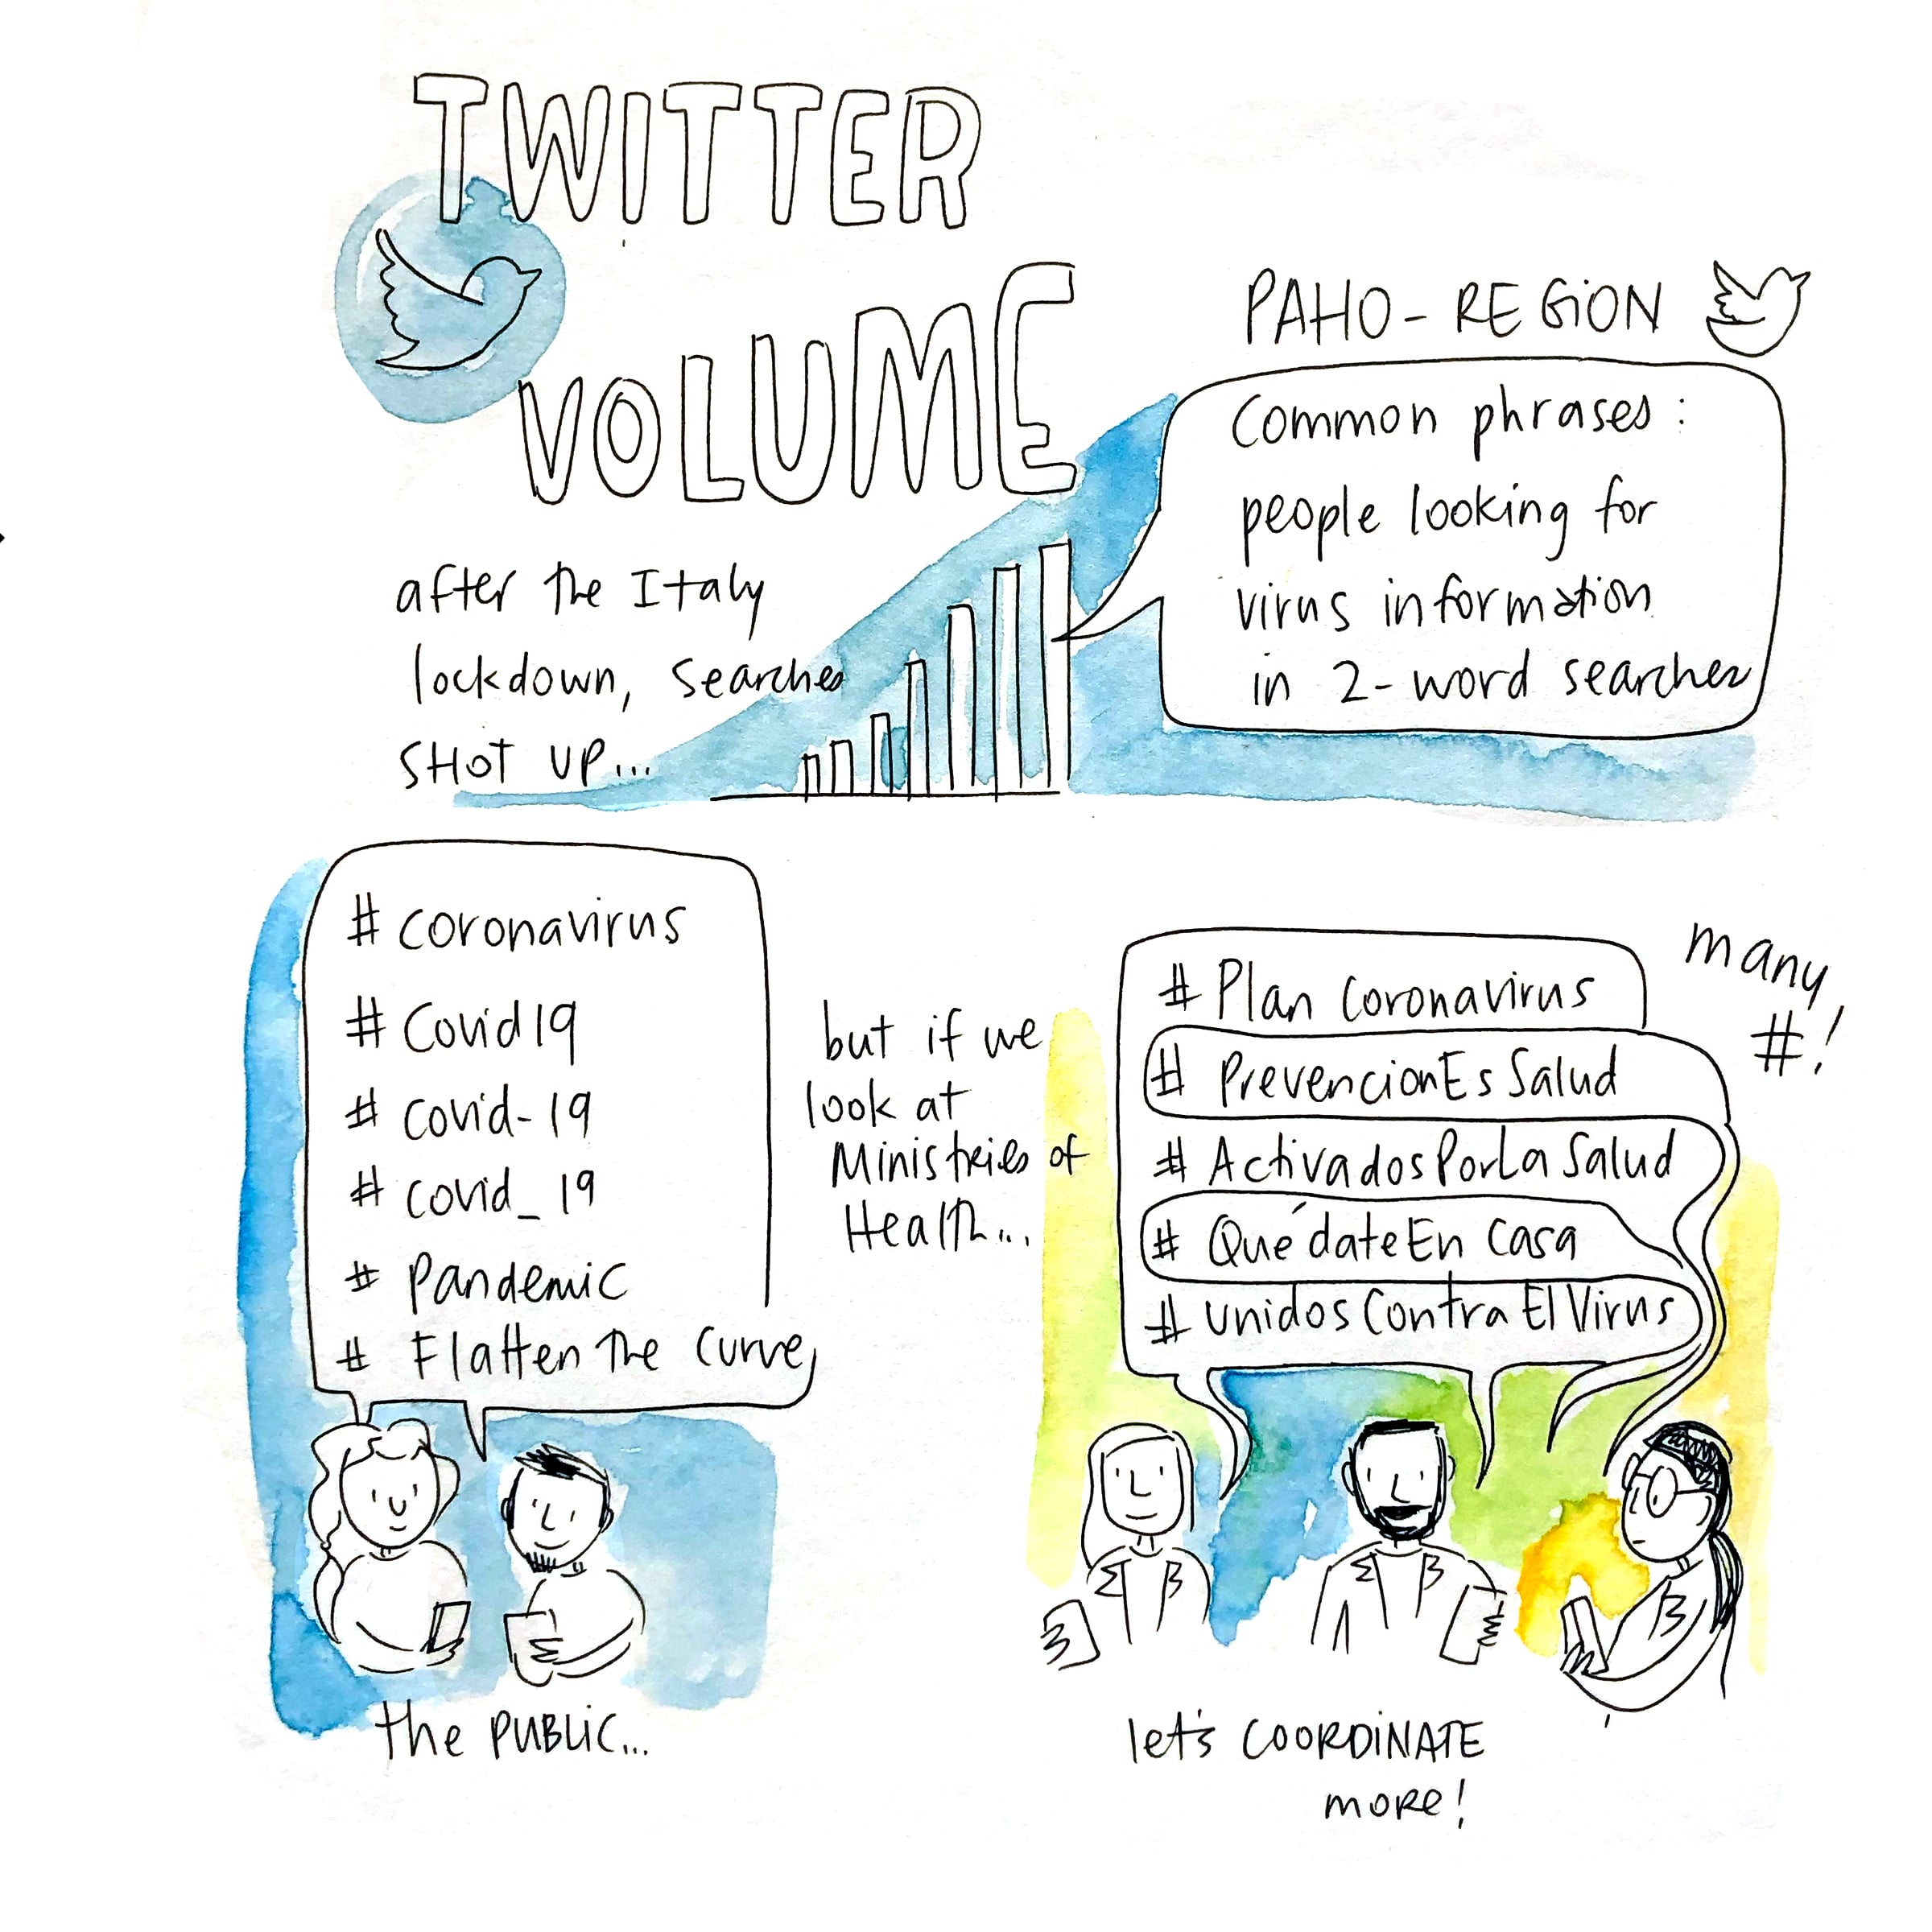 TWITTER
VOLUME
after the Italy
lockdown, searches
SHOT UP...
PAHO - REGION
Common phrases:
people looking for
virus information
in 2-word searches
# coronavirus
# Covid19
# covid-19
# covid_19
# Pandemic
# Flatten The Curve
the PUBLIC...
but if we
look at
Ministries of
Health...
# Plan Coronavirus
# PrevencionEsSalud
# ActivadosPorLaSalud
# QuédateEnCasa
# UnidosContraElVirus
many
#!
let's COORDINATE
more!